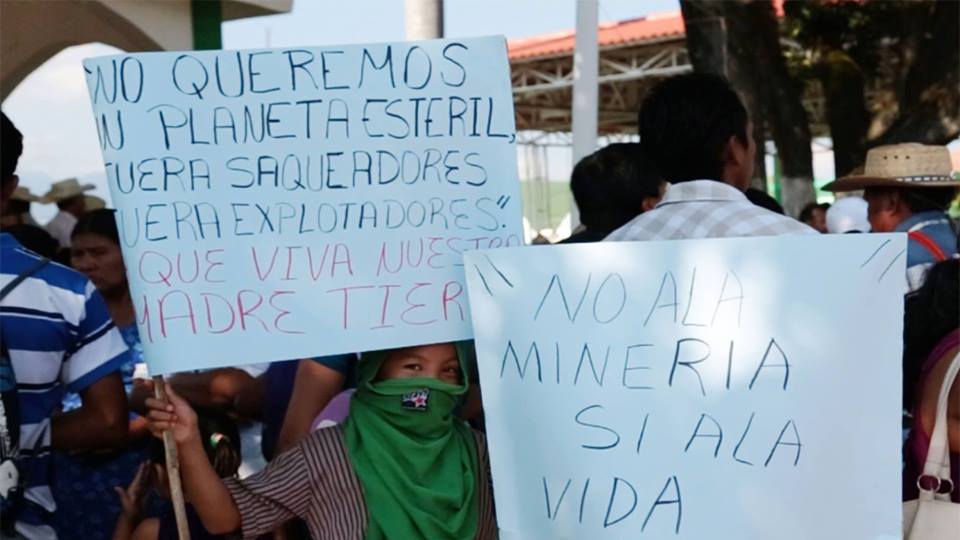 "NO QUEREMOS
UN PLANETA ESTERIL,
FUERA SAQUEADORES
FUERA EXPLOTADORES".
QUE VIVA NUESTRA
MADRE TIER
NO A LA
MINERIA
SI A LA
VIDA